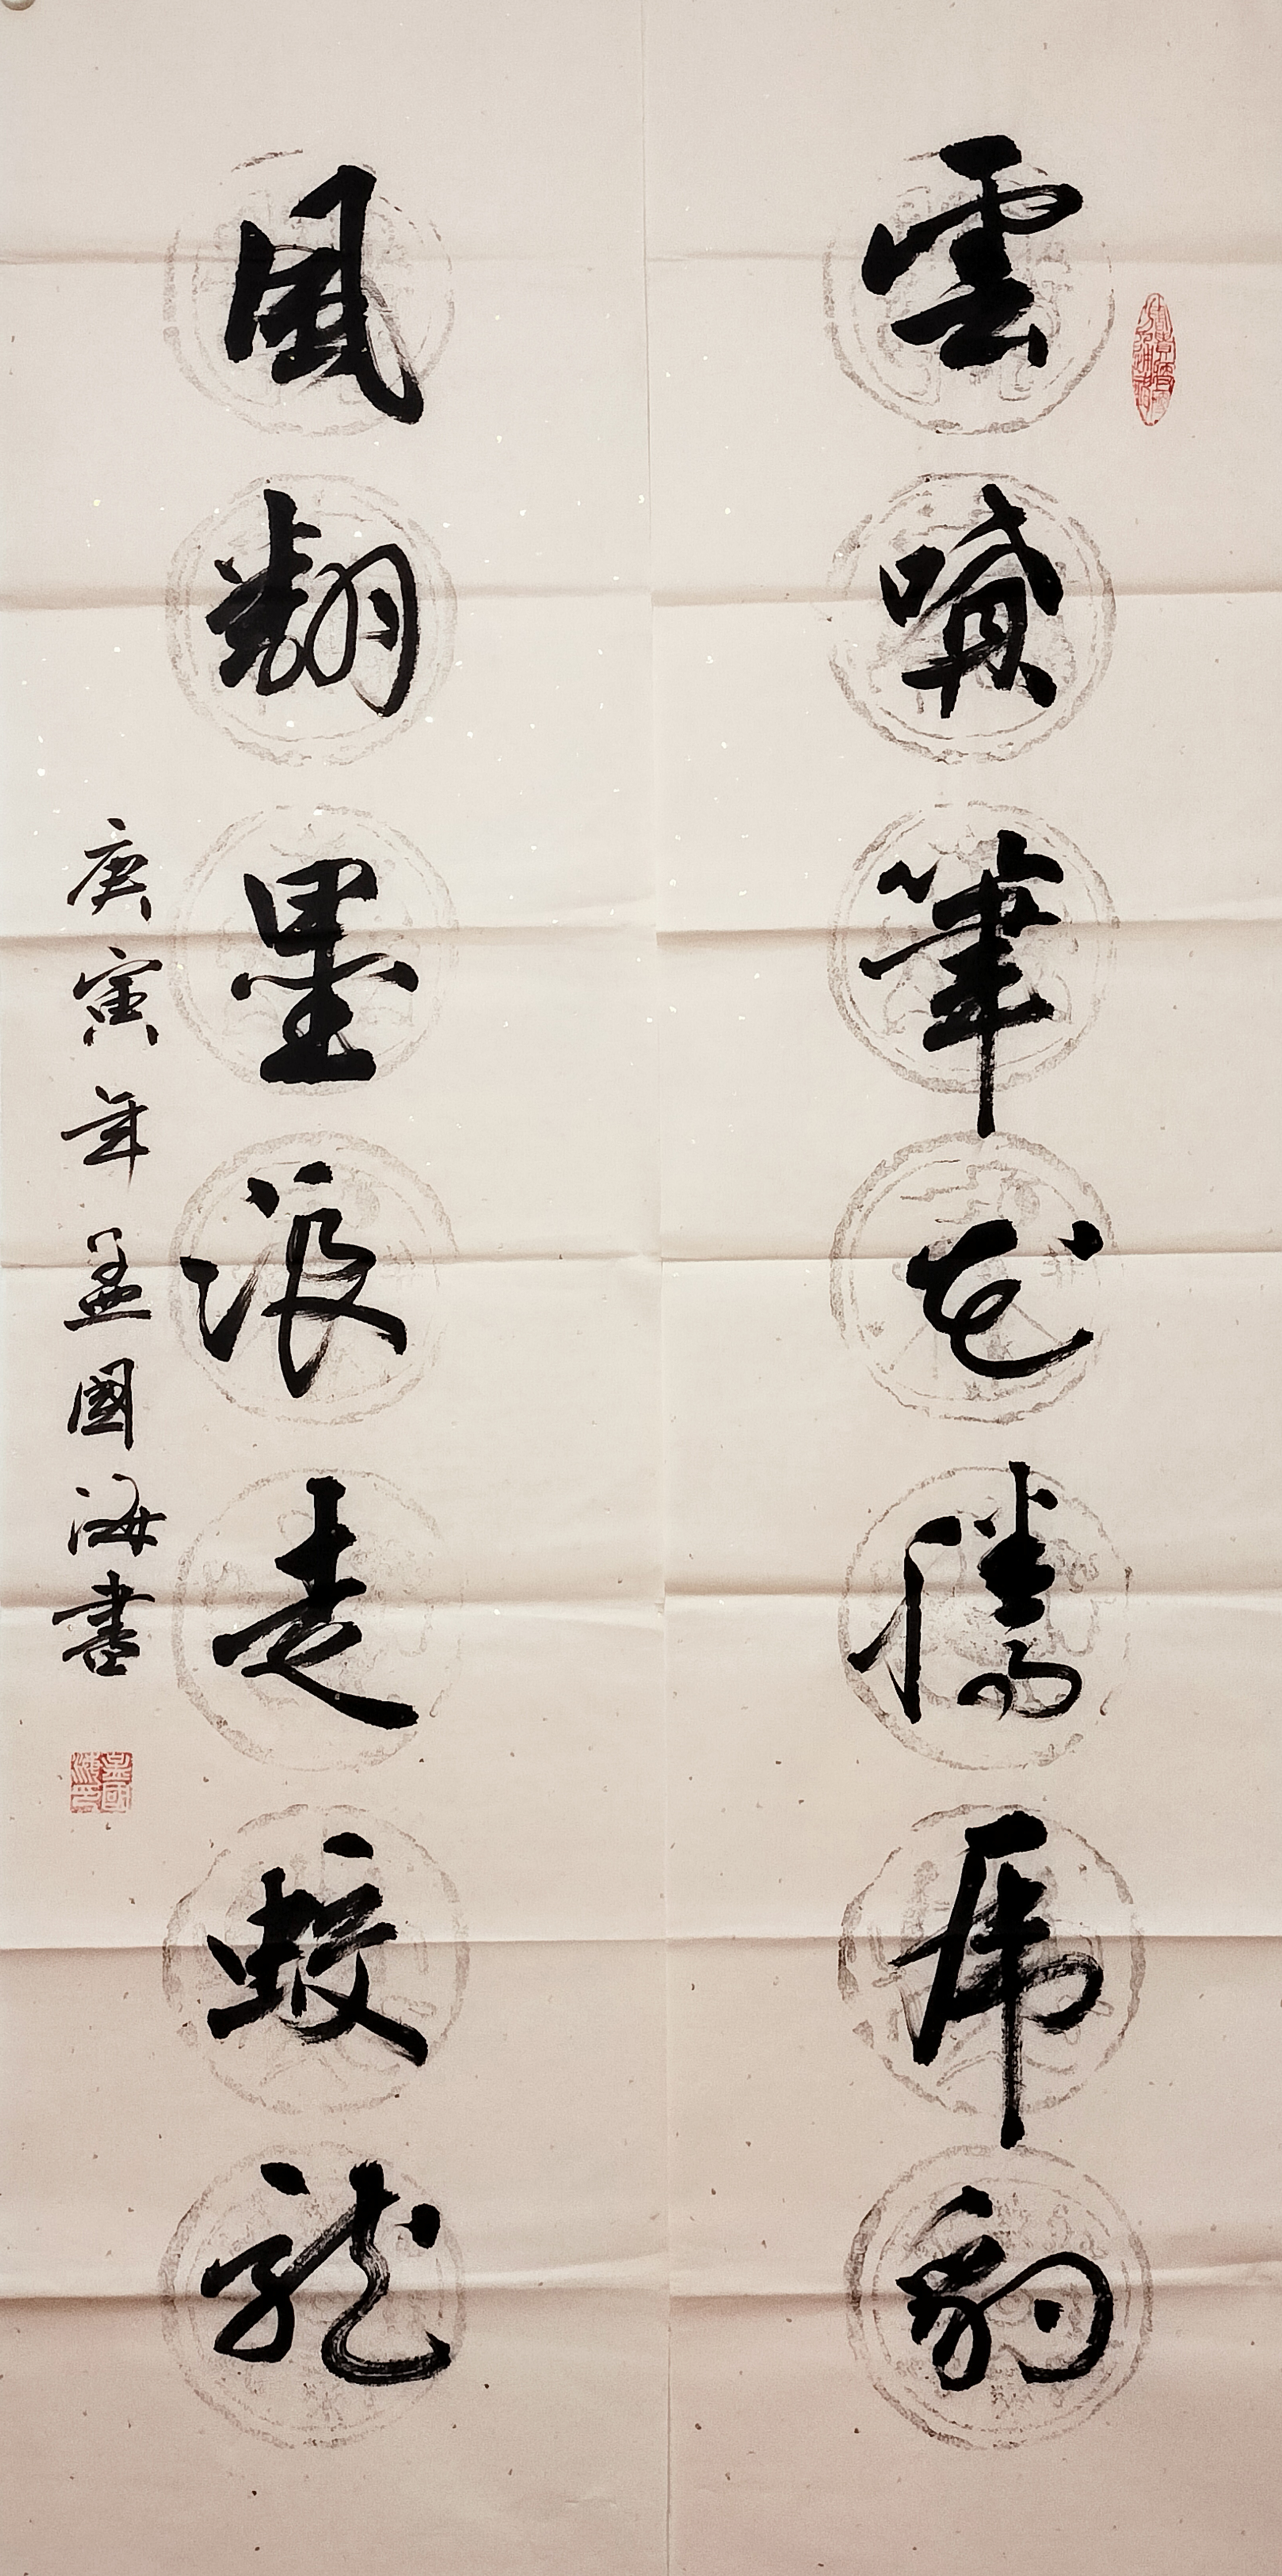 雲噴筆花騰虎豹
風翻墨浪走蛟龍
庚寅年孟國海書
孟國海印